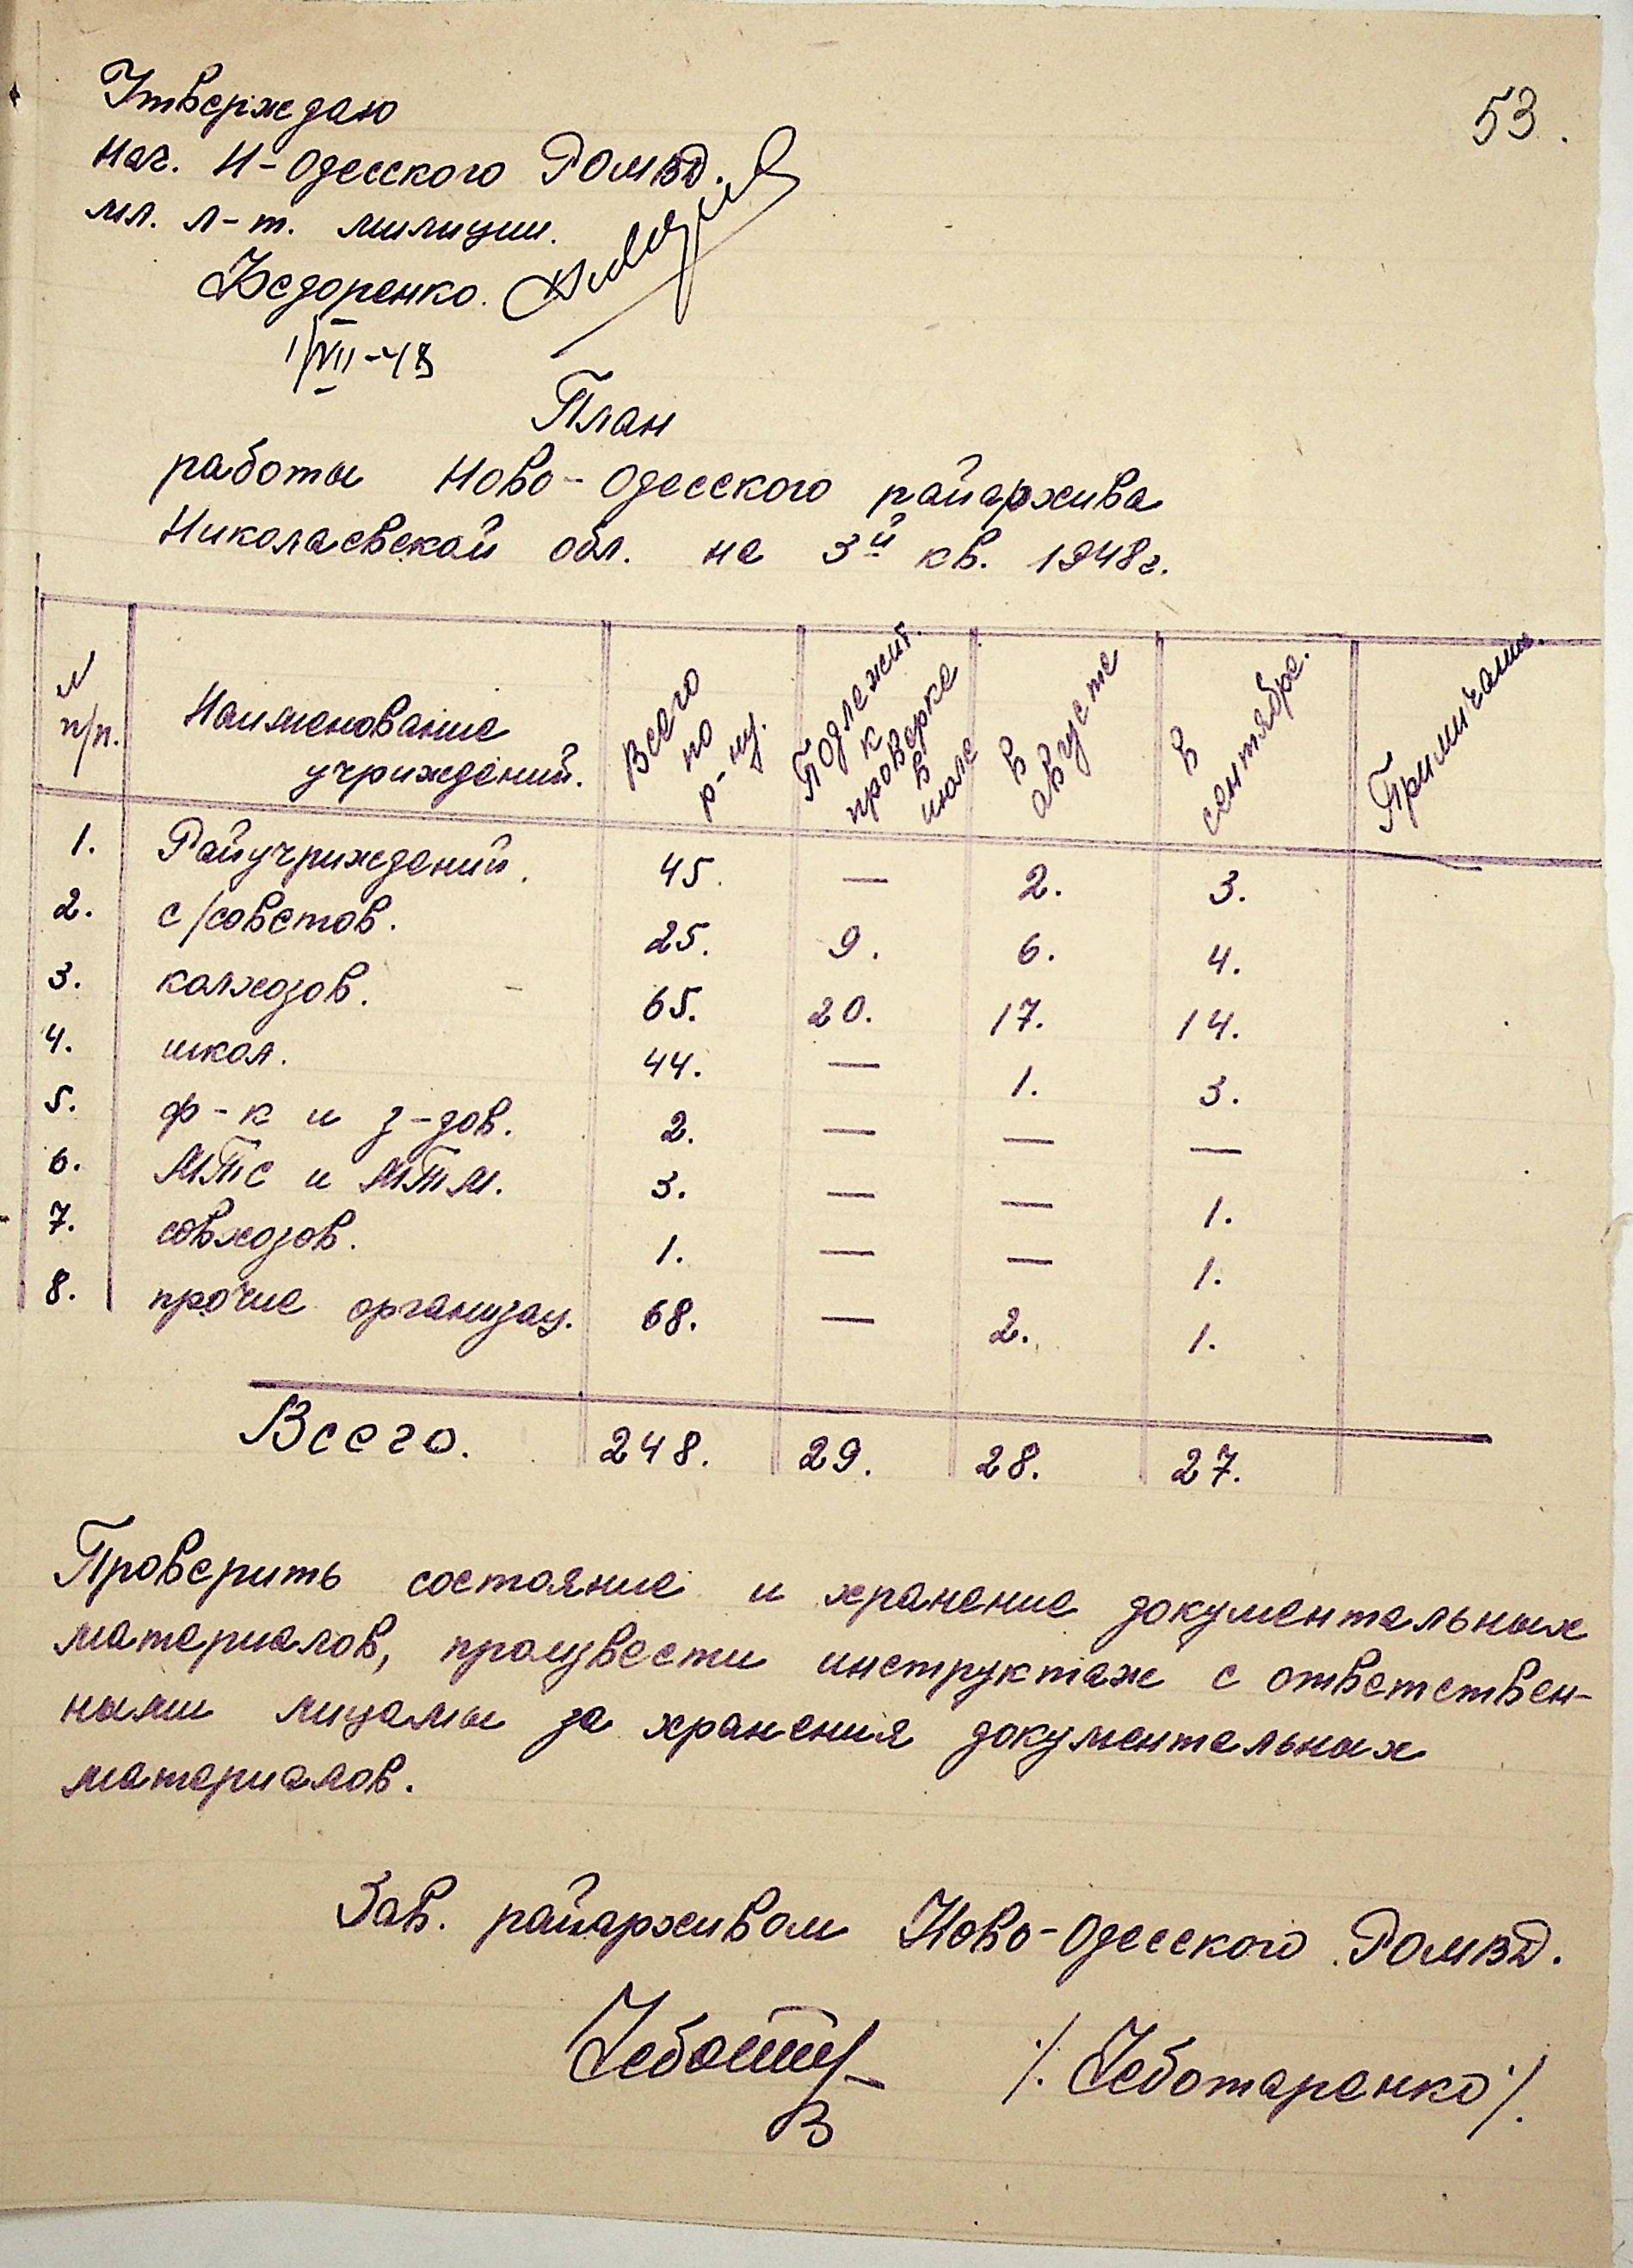 53.
Утверждаю
Нач. Н-Одесского РОМВД.
мл. л-т. милиции.
Федоренко.
1/VII-48
План
работы Ново-Одесского райархива
Николаевской обл. на 3й кв. 1948г.
№ п/п. Наименование учриждений. Всего по р-ну. Подлежит. к проверке в июле в августе в сентябре. Примичание.
1. Райучриждений. 45. — 2. 3.
2. с/советов. 25. 9. 6. 4.
3. колхозов. 65. 20. 17. 14.
4. школ. 44. — 1. 3.
5. ф-к и з-дов. 2. — — —
6. МТС и МТМ. 3. — — 1.
7. совхозов. 1. — — 1.
8. прочие организац. 68. — 2. 1.
Всего. 248. 29. 28. 27.
Проверить состояние и хранение документальных
материалов, произвести инструктаж с ответствен-
ными лицамы за хранения документальных
материалов.
Зав. райархивом Ново-Одесского РОМВД.
/. Чеботаренко /.